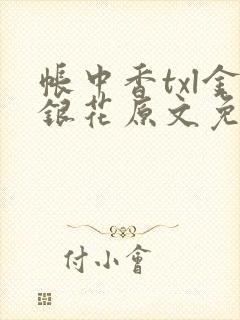 帳中香txl金
銀花原文免
付小會